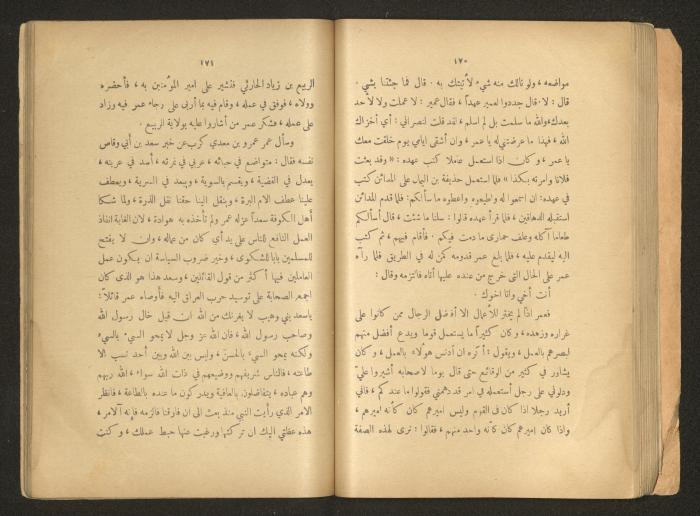 ١٧٠
مواضعه ، ولو نالك منه شيء لأتيتك به . قال فما جئتنا بشيء
قال : لا . قال جددوا لعمير عهداً ، فقال عمير : لا عملت ولا لأحد
بعدك ، والله ما سلمت بل لم اسلم ، لقد قلت لنصراني : أي أخزاك
الله ، فهذا ما عرضتني له يا عمر ، وان أشقى أيامي يوم خلفت معك
يا عمر ، وكان اذا استعمل عاملا كتب عهده : « وقد بعثت
فلانا وامرته بكذا » فلما استعمل حذيفة بن اليمان على المدائن كتب
في عهده : ان اسمعوا له واطيعوه واعطوه ما سألكم : فلما قدم المدائن
استقبله الدهاقين ، فلما قرأ عهده قالوا : سلنا ما شئت ، قال أسألكم
طعاما آكله وعلف حماري ما دمت فيكم . فأقام فيهم ، ثم كتب
اليه ليقدم عليه ، فلما بلغ عمر قدومه كمن له في الطريق فلما رآه
عمر على الحال التى خرج من عنده عليها أتاه فالتزمه وقال :
أنت أخي وانا اخوك .
فعمر اذا لم يختر للأعمال الا أفضل الرجال ممن كانوا على
غراره وزهده ، وكان كثيراً ما يستعمل قوما ويدع أفضل منهم
لبصرهم بالعمل ، ويقول : أكره ان أدنس هؤلاء بالعمل ، وكان
يشاور في كثير من الوقائع حتى قال يوما لاصحابه أشيروا عليّ
ودلوني على رجل أستعمله في امر قد دهمني فقولوا ما عندكم ، فاني
أريد رجلا اذا كان في القوم وليس اميرهم كان كأنه اميرهم ،
واذا كان اميرهم كان كأنه واحد منهم ، فقالوا : نرى لهذه الصفة
١٧١
الربيع بن زياد الحارثي فنشير على امير المؤمنين به ، فأحضره
وولاه ، فوفق في عمله ، وقام فيه بما أربى على رجاء عمر فيه وزاد
على عمله ، فشكر عمر من أشاروا عليه بولاية الربيع .
وسأل عمر عمرو بن معدي كرب عن خبر سعد بن أبي وقاص
نفسه فقال : متواضع في جبائه ، عربي في نمرته ، أسد في عرينه ،
يعدل في القضية ، ويقسم بالسوية ، ويبعد في السرية ، ويعطف
علينا عطف الام البرة ، وينقل الينا حقنا نقل الذرة ، ولما شكا
أهل الكوفة سعداً عزله عمر ولم تأخذه به هوادة ، لان الغاية انفاذ
العمل النافع للناس على يد أي كان من عماله ، وان لا يفتح
للمسلمين بابا للشكوى ، وخير ضروب السياسة ان يكون عمل
العاملين فيها أكثر من قول القائلين ، وسعد هذا هو الذى كان
اجمع الصحابة على توسيد حرب العراق اليه فأوصاه عمر قائلاً :
يا سعد بني وهيب لا يغرنك من الله ان قيل خال رسول الله
وصاحب رسول الله ، فان الله عز وجل لا يمحو السيء بالسيء
ولكنه يمحو السيء بالحسن ، وليس بين الله وبين أحد نسب الا
طاعته ، فالناس شريفهم ووضيعهم في ذات الله سواء ، الله ربهم
وهم عباده ، يتفاضلون بالعافية ويدركون ما عنده بالطاعة ، فانظر
الامر الذي رأيت النبي منذ بعث الى ان فارقنا فالزمه فإنه الأمر ،
هذه عظتي اليك ان تركتها ورغبت عنها حبط عملك ، وكنت